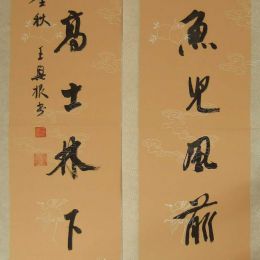 魚兒風前
高士林下
秋
王興根书